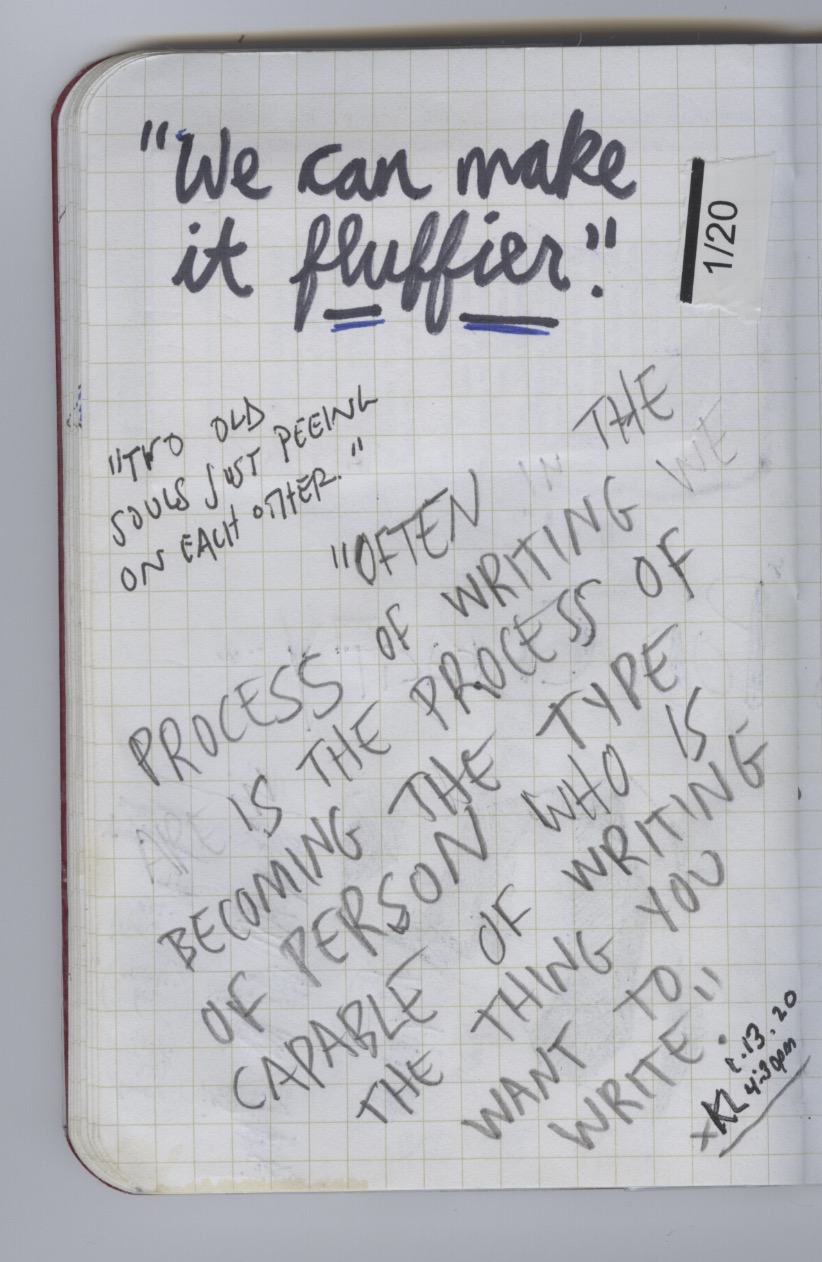 "We can make
it fluffier."
1/20
"TWO OLD
SOULS JUST PEEING
ON EACH OTHER."
"OFTEN IN THE
PROCESS OF WRITING WE
IS THE PROCESS OF
ARE
BECOMING THE TYPE
OF PERSON WHO IS
CAPABLE OF WRITING
THE THING YOU
WANT TO
WRITE."
1.13.20
4:30pm
xKL